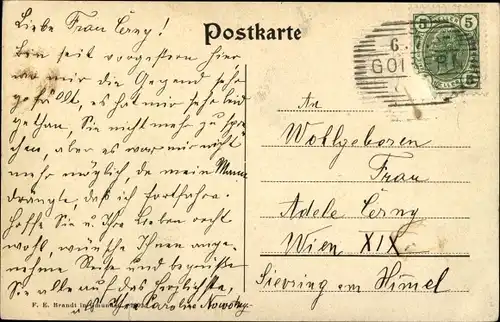 Postkarte
Liebe Frau Černy!
Bin seit vorgestern hier
wo mir die Gegend sehr
gefällt, es hat mir sehr leid
gethan, Sie nicht mehr zu spre-
chen, aber es war mir nicht
mehr möglich da mein Mann
drängte, daß ich fortfahre.
Hoffe Sie u Ihre Lieben recht
wohl, wünsche Ihnen ange-
nehme Reise und begrüße
Sie alle auf das Herzlichste,
Caroline Nowotny
F. E. Brandt in Gmunden
5 5
6.
GOI
An
Wohlgeboren
Frau
Adele Černy
Wien XIX.
Sievering am Himmel